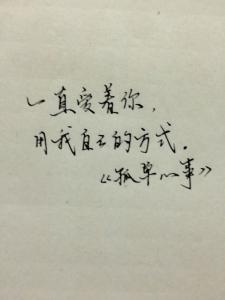 一直爱着你，
用我自己的方式。
《孤单心事》